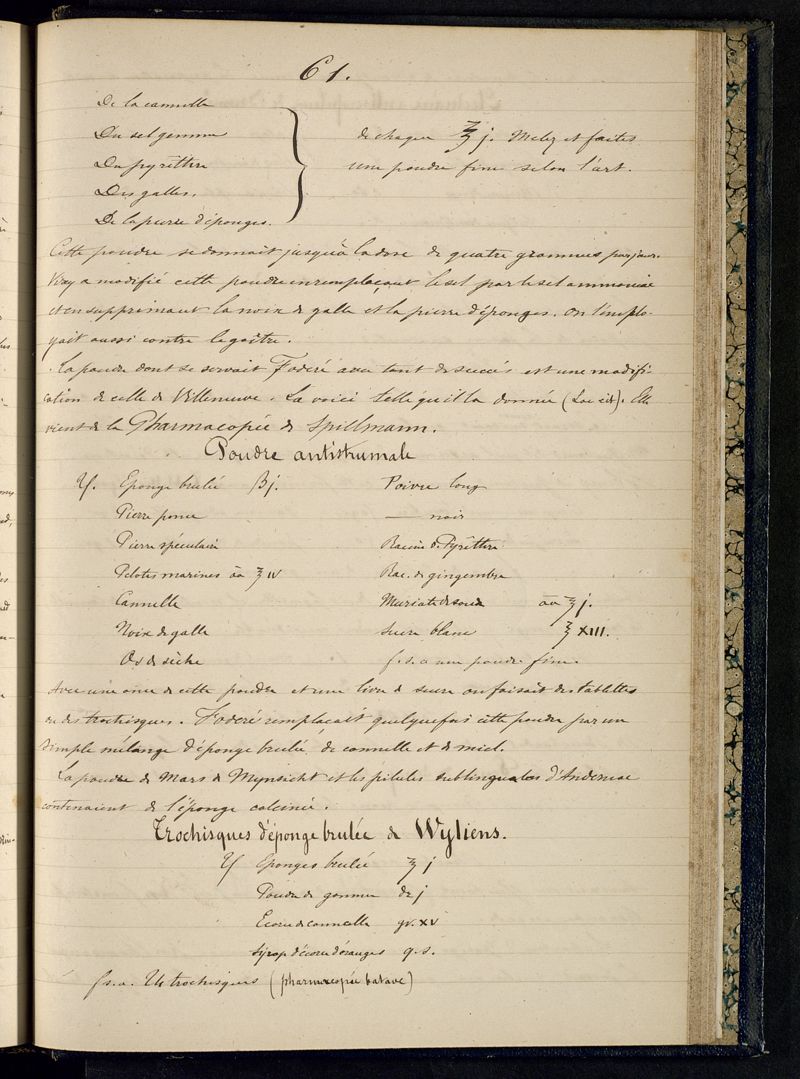 61.
De la cannelle
Du sel gemme
Du pyrèthre
Des galles.
De la pierre d'éponges.
de chaque ℥ j. Melez et faites
une poudre fine selon l'art.
Cette poudre se donnait jusqu'à la dose de quatre grammes par jour.
Virey a modifié cette poudre en remplaçant le sel par le sel ammoniac
et en supprimant la noix de galle et la pierre d'éponges. On l'emplo-
yait aussi contre le goître.
La poudre dont se servait Foderé avec tant de succès est une modifi-
cation de celle de Villeneuve. La voici telle qu'il l'a donnée (Loc cit). Elle
vient de la Pharmacopée de Spillmann.
Poudre antistrumale
♃. Eponge brulée ℥j. Poivre long
Pierre ponce — noir
Pierre spéculaire Racine de Pyrèthre
Pelotes marines āā ℥ IV Rac. de gingembre
Cannelle Muriate de soude āā ℥ j.
Noix de galle Sucre blanc ℥ XIII.
Os de sèche f. s. a une poudre fine.
Avec une once de cette poudre et une livre de sucre on faisait des tablettes
ou des trochisques. Foderé remplaçait quelquefois cette poudre par un
simple mélange d'éponge brulée, de cannelle et de miel.
La poudre de Mars de Mynsicht et les pilules sublinguales d'Andernac
contenaient de l'éponge calcinée.
Trochisques d'éponge brulée de Wyliens.
♃ Eponges brulée ℥ j
Poudre de gomme dr j
Ecorce de cannelle gr. xv
Syrop d'écorce d'oranges q. s.
f s. a. Ut trochisques (pharmacopée batave)